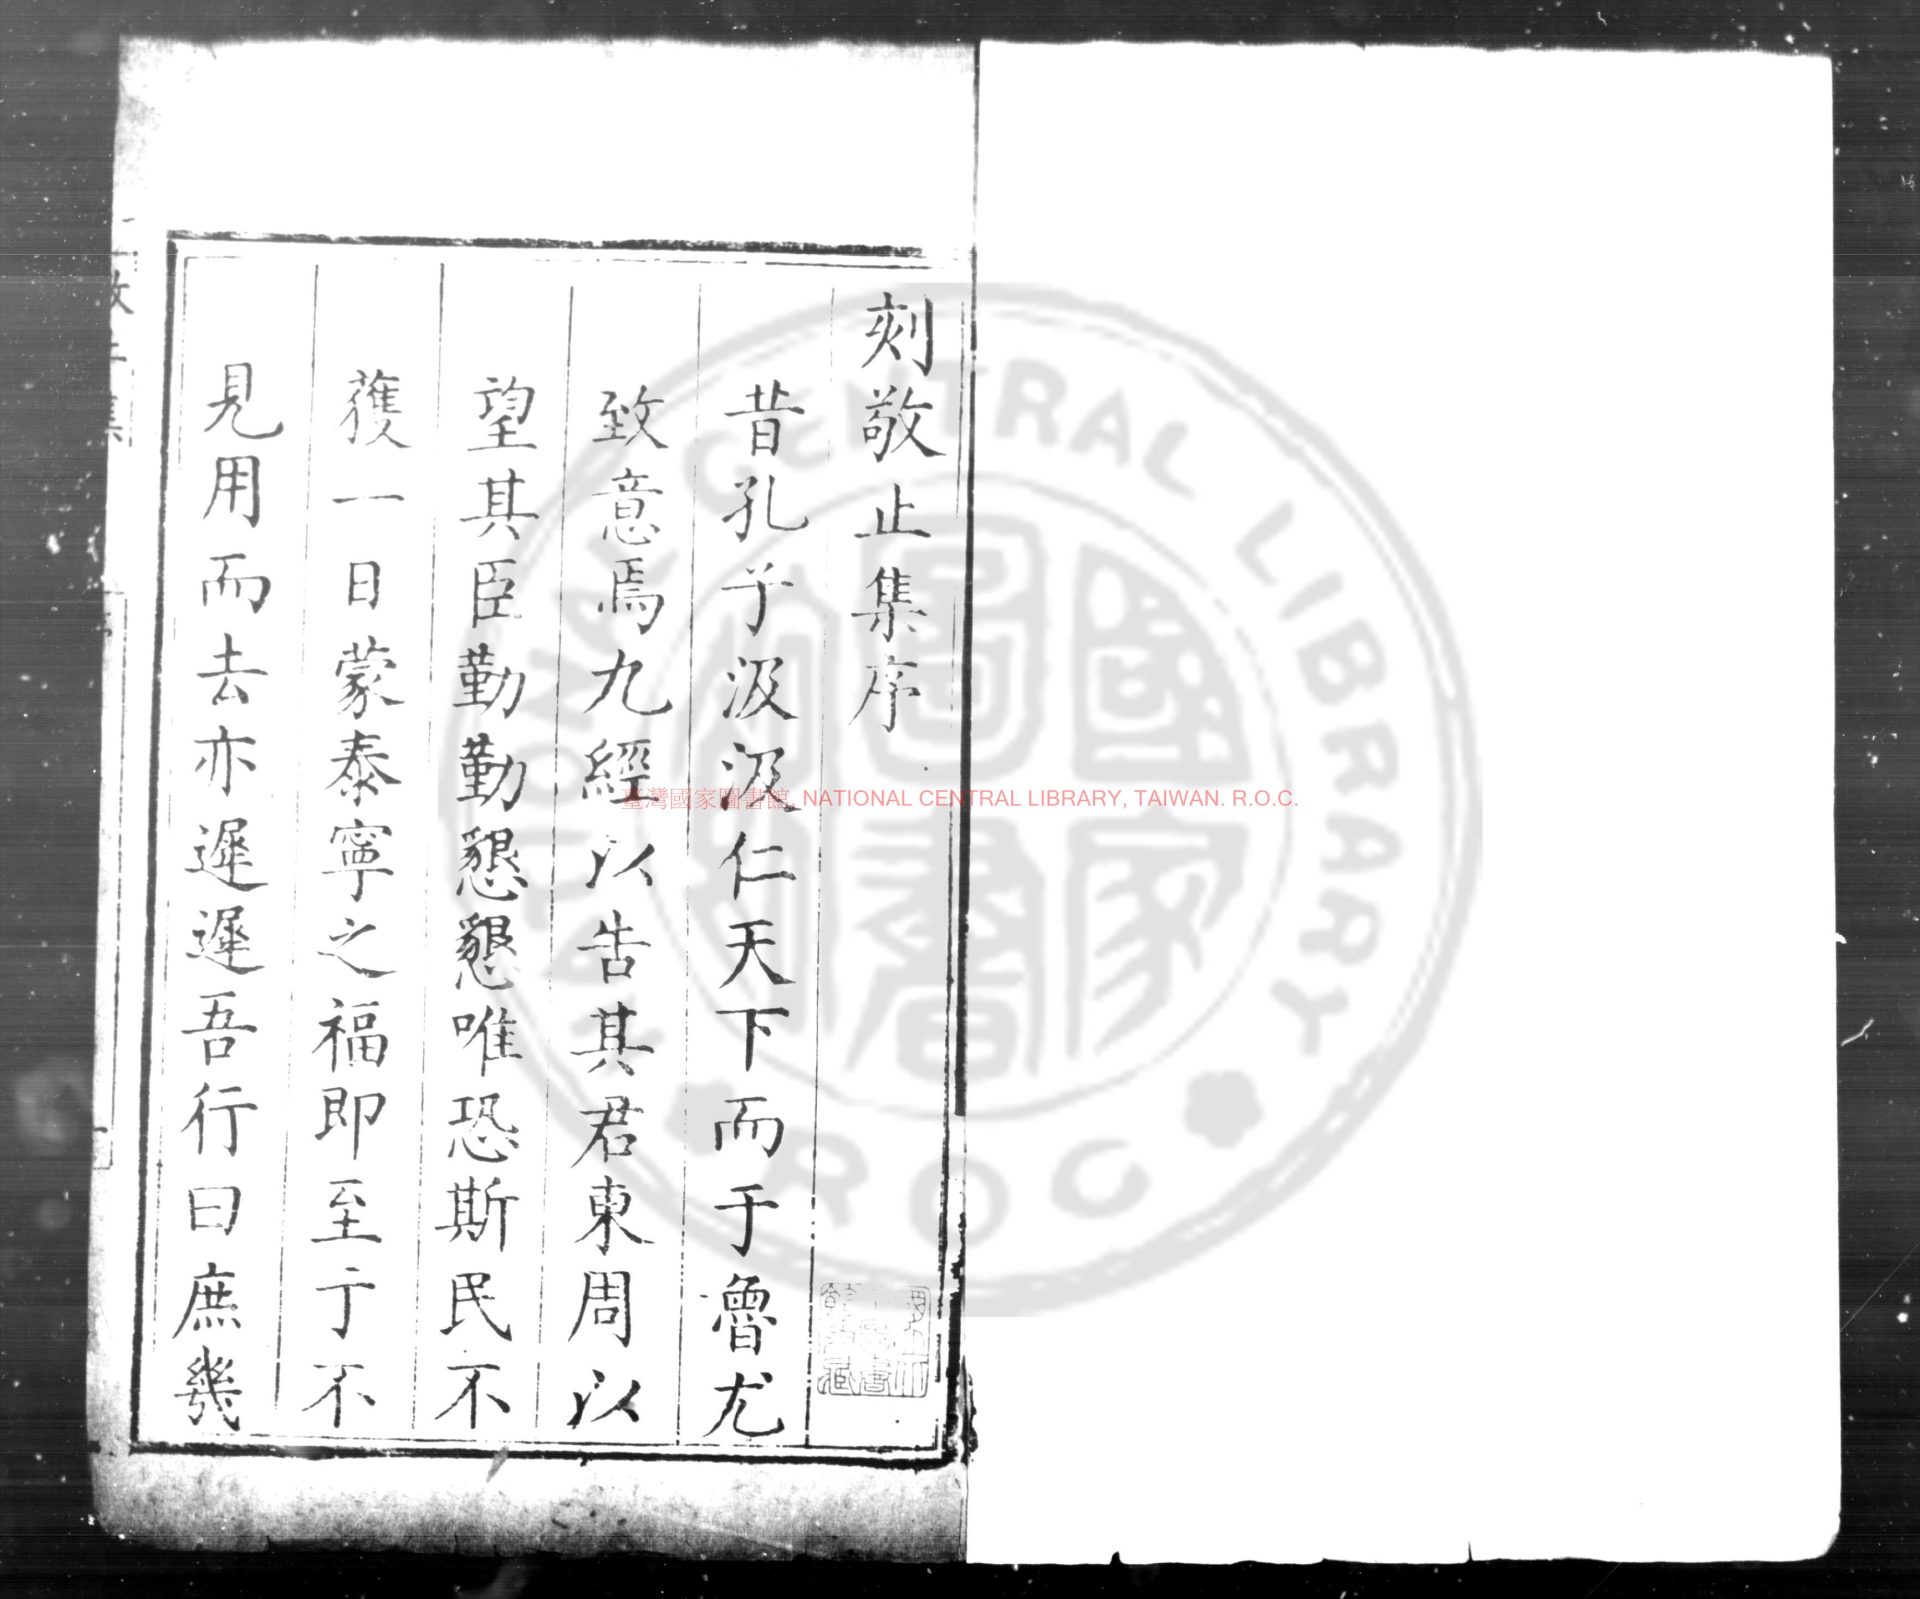 刻敬止集序
昔孔子汲汲仁天下而于魯尤
致意焉九經以告其君東周以
望其臣勤勤懇懇唯恐斯民不
獲一日蒙泰寧之福即至于不
見用而去亦遲遲吾行曰庶幾
臺灣國家圖書館, NATIONAL CENTRAL LIBRARY, TAIWAN. R.O.C.
NATIONAL CENTRAL LIBRARY
R.O.C
國家圖書